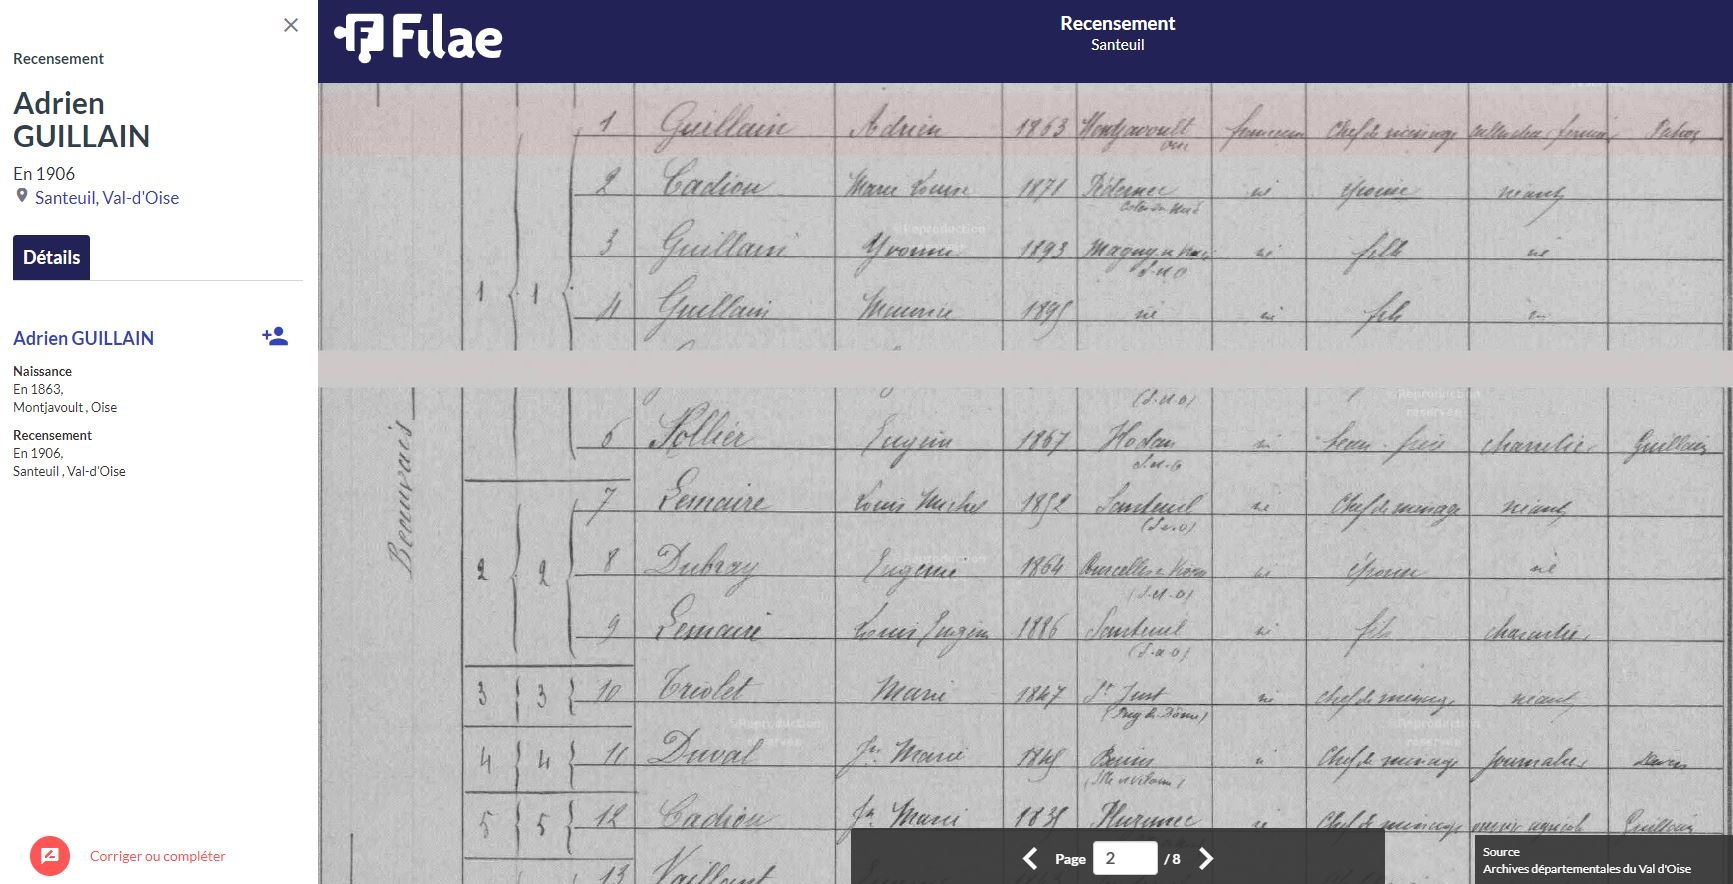 Recensement
Adrien
GUILLAIN
En 1906
Santeuil, Val-d'Oise
Détails
Adrien GUILLAIN
Naissance
En 1863,
Montjavoult , Oise
Recensement
En 1906,
Santeuil , Val-d'Oise
Corriger ou compléter
Filae
Recensement
Santeuil
1 Guillain Adrien 1863 Montjavoult Chef de ménage Patron
Oise
2 Cadiou Marie Louise 1871 épouse néant
3 Guillain Yvonne 1893 Magny en fille
S-et-O
1 1
4 Guillain Maurice 1895 fils
©Reproduction
réservée
Beauvais
(S.et.O)
6 Eugène 1867 Hodan beau-frère charretier Guillain
S.et.O
7 Lemaire Louis Michel 1852 Santeuil Chef de ménage néant
(S.et.O)
2 2
8 Dubray Eugénie 1864 Courcelles épouse
(S.et.O)
9 Lemaire Louis Eugène 1886 Santeuil fils charretier
(S.et.O)
3 3 10 Triolet Marie 1847 St Just chef de ménage néant
(Puy-de-Dôme)
4 4 11 Duval Marie Chef de ménage journalier
(Ille et Vilaine)
5 5 12 Cadiou Marie Chef de ménage Guillain
13 Vaillant
Page 2 / 8
Source
Archives départementales du Val d'Oise